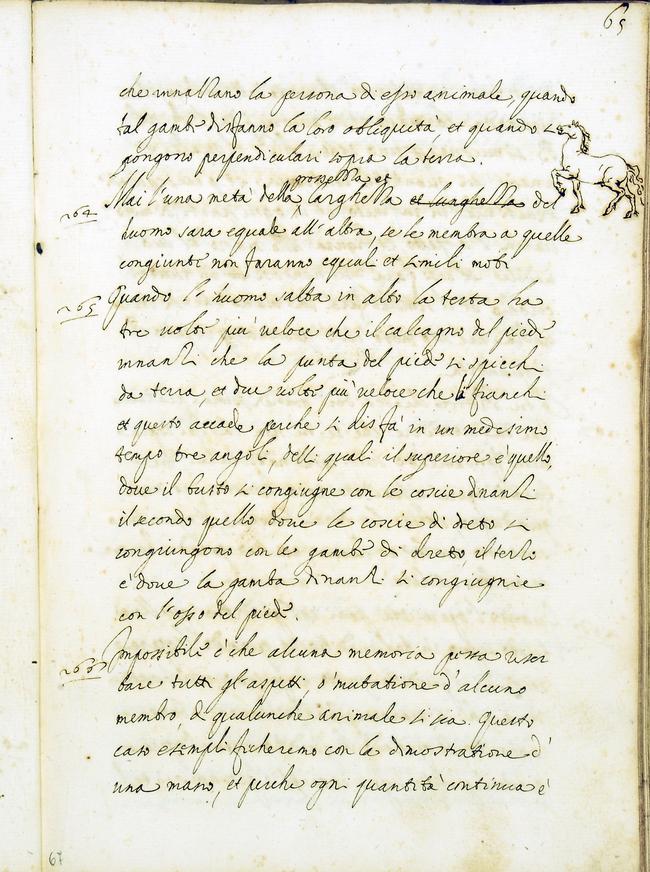 65
che innalzano la persona di esso animale, quando
tal gambe disfanno la loro obliquità, et quando si
pongono perpendiculari sopra la terra.
grossezza et
264 Mai l'una metà della larghezza et lunghezza del
huomo sara equale all'altra, se le membra a quelle
congiunte non faranno equali et simili moti
265 Quando l'huomo salta in alto la testa ha
tre volte più veloce che il calcagno del piede
innanzi che la punta del piede si spicchi
da terra, et due volte più veloce che li fianchi
et questo accade perche si disfa in un medesimo
tempo tre angoli, delli quali il superiore è quello,
dove il busto si congiugne con le coscie dnanzi
il secondo quello dove le coscie di dreto si
congiungono con le gambe di dreto, il terzo
è dove la gamba dinanzi si congiugnie
con l'osso del piede.
266 Impossibile è che alcuna memoria possa riser
bare tutti gl'aspetti, o mutatione d'alcuno
membro, di qualunche animale si sia. Questo
caso esemplificheremo con la dimostratione d'
una mano, et perche ogni quantità continua è
67